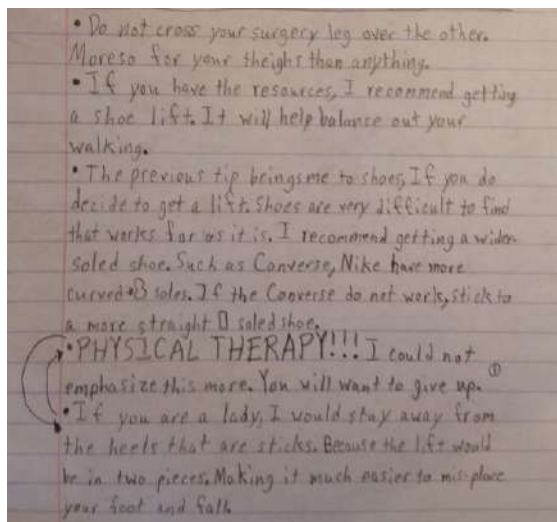 • Do not cross your surgery leg over the other.
Moreso for your theighs than anything.
• If you have the resources, I recommend getting
a shoe lift. It will help balance out your
walking.
• The previous tip beings me to shoes, If you do
decide to get a lift. Shoes are very difficult to find
that works for as it is. I recommend getting a wider
soled shoe. Such as Converse, Nike have more
curved soles. If the Converse do not work, stick to
a more straight soled shoe.
• PHYSICAL THERAPY!!! I could not
emphasize this more. You will want to give up. ①
• If you are a lady, I would stay away from
the heels that are sticks. Because the lift would
be in two pieces. Making it much easier to mis-place
your foot and fall.